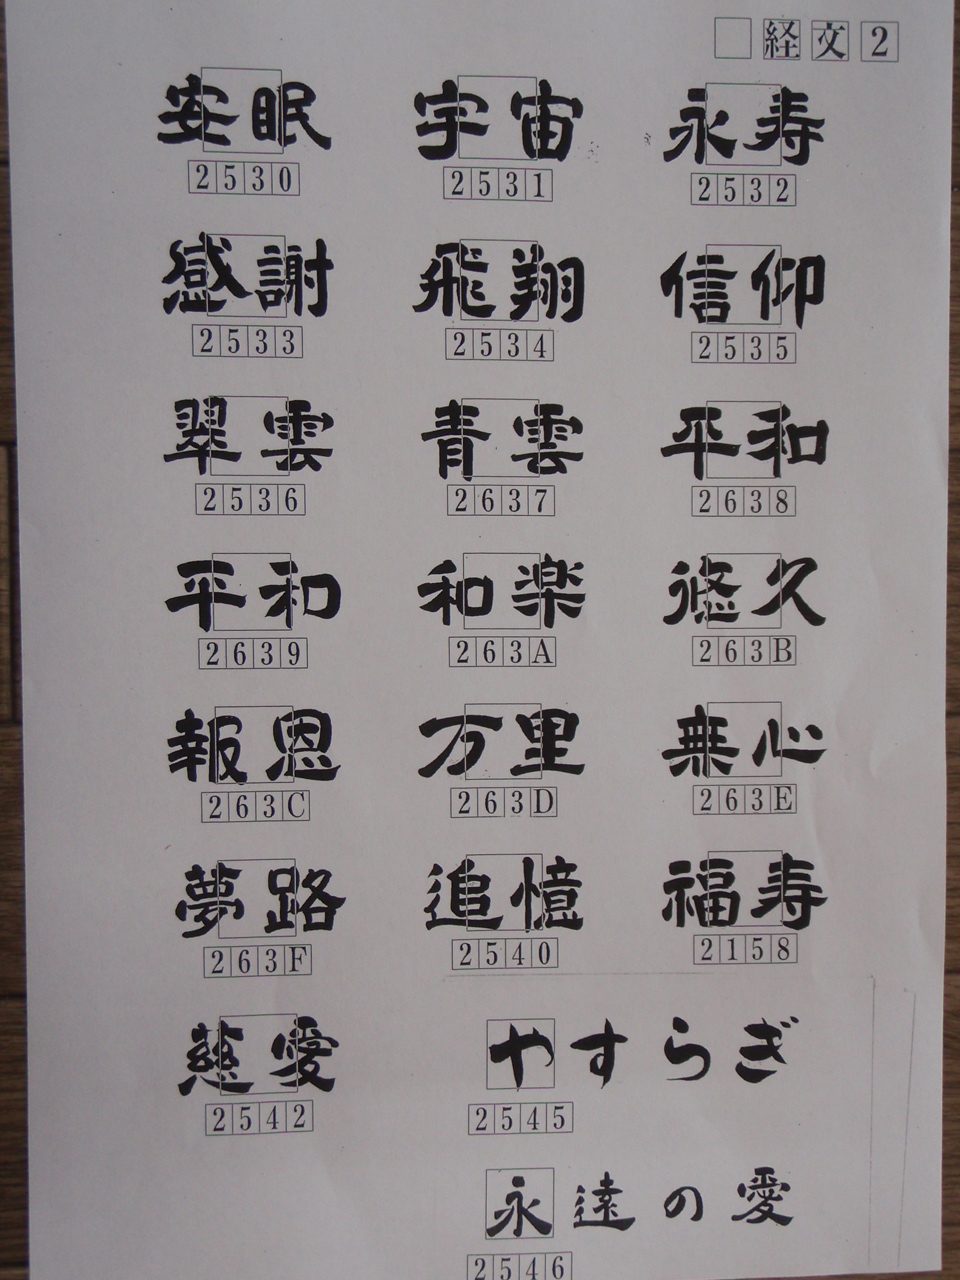 経文2
安眠 宇宙 永寿
2530 2531 2532
感謝 飛翔 信仰
2533 2534 2535
翠雲 青雲 平和
2536 2637 2638
平和 和楽 悠久
2639 263A 263B
報恩 万里 無心
263C 263D 263E
夢路 追憶 福寿
263F 2540 2158
慈愛 やすらぎ
2542 2545
永遠の愛
2546